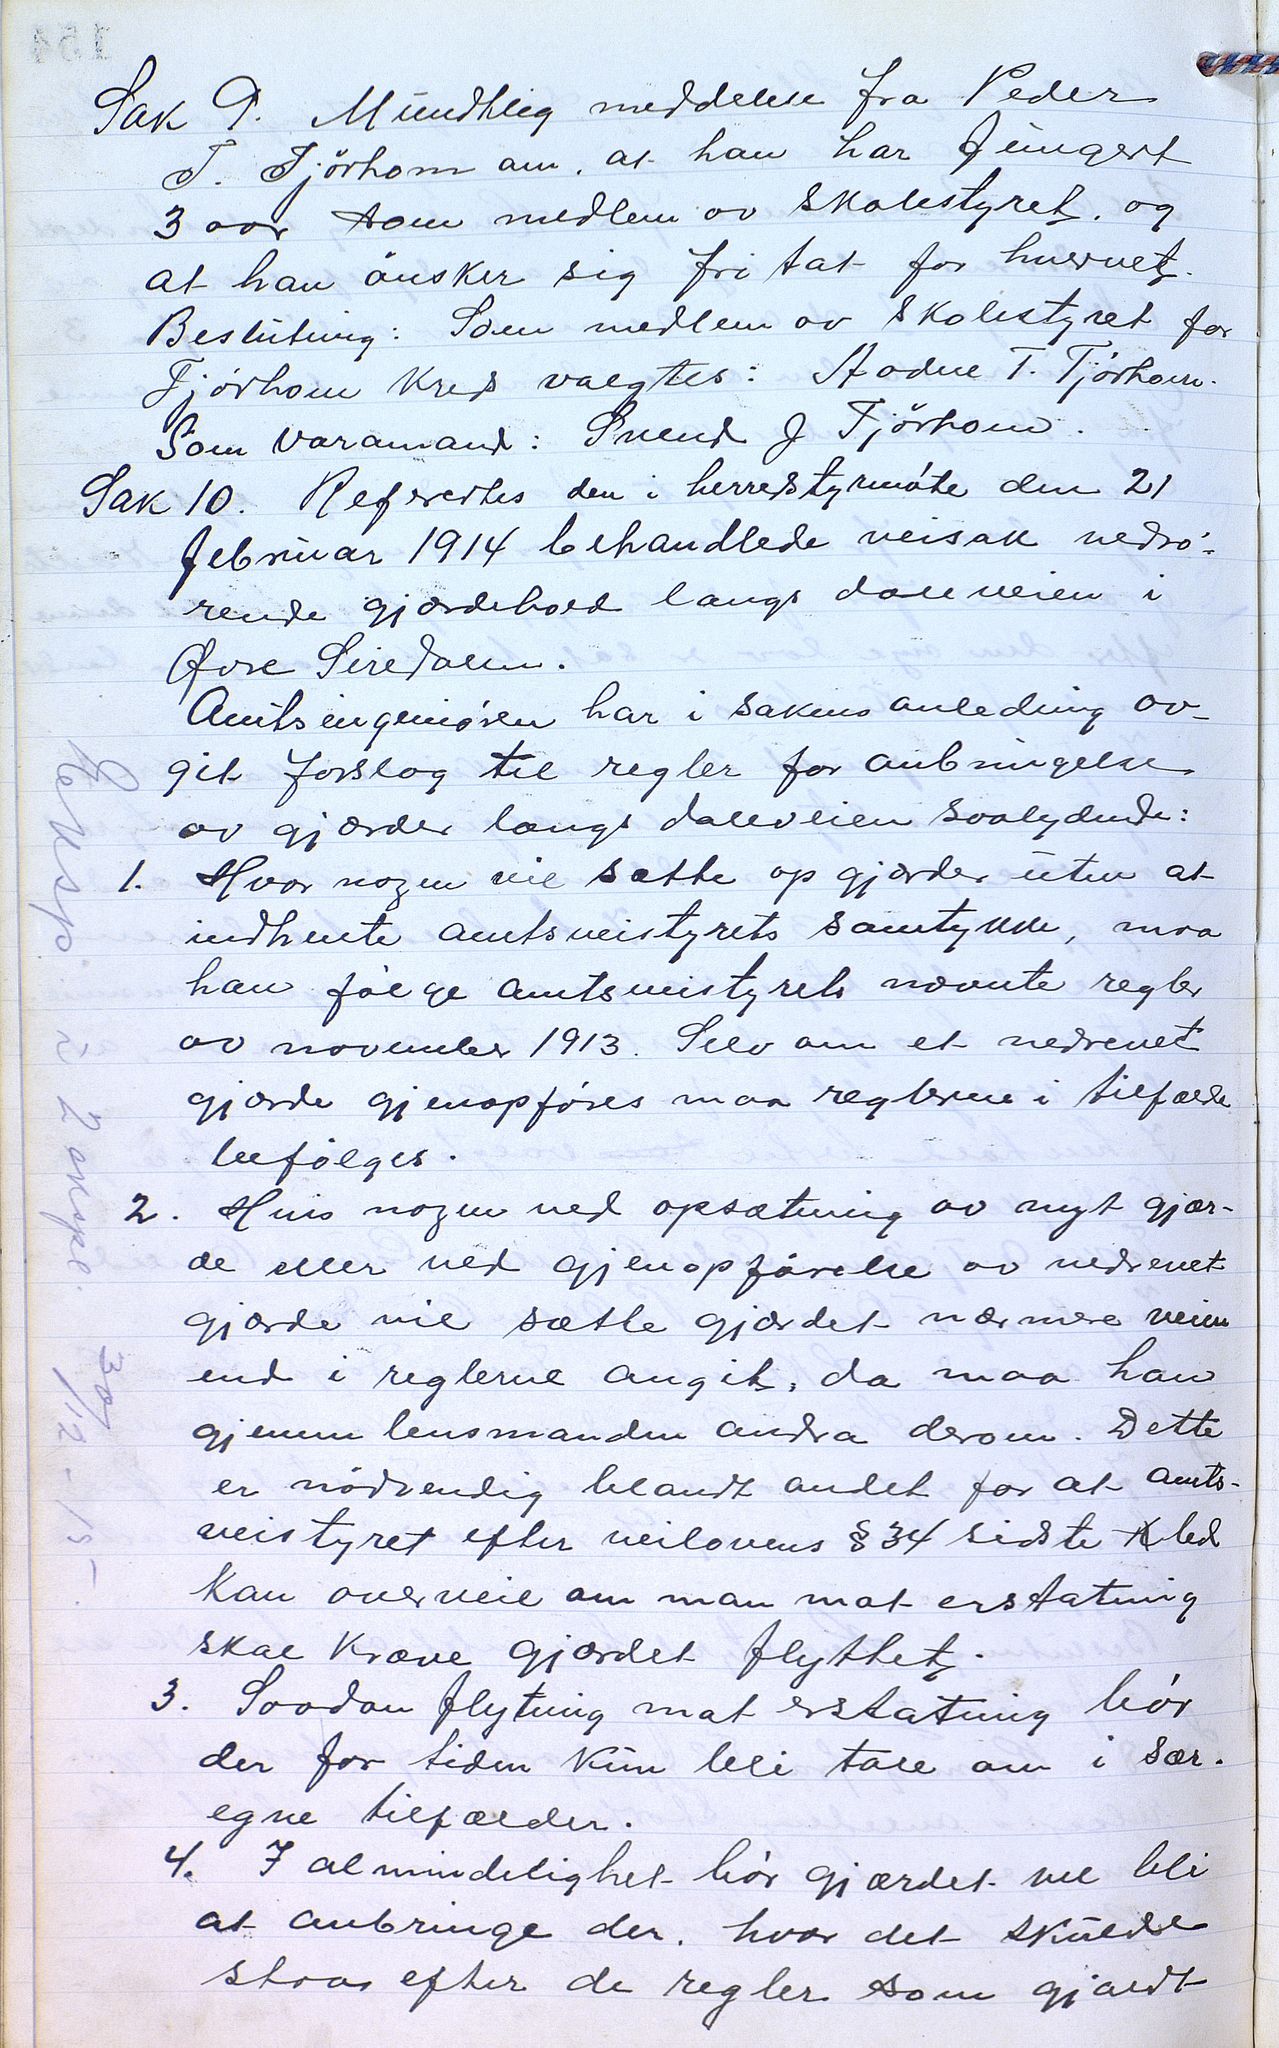 Sak 9. Mundtlig meddelelse fra Peder
T. Tjörhom om, at han har fungert
3 aar som medlem av skolestyret, og
at han önsker sig fritat for hvervet.
Beslutning: Som medlem av skolestyret for
Tjörhom kreds valgtes: Aadne T. Tjörhom.
Som varamand: Svend J Tjörhom.
Sak 10. Refereertes den i herredstyrmöte den 21
februar 1914 behandlede veisak vedrö-
rende gjærdehold langs dalveien i
Øvre Siredalen.
Amtsingeniören har i sakens anledning av-
git forslag til regler for anbringelse
av gjærder langs dalveien saalydende:
1. Hvor nogen vil sætte op gjærder uten at
indhente amtsveistyrets samtykke, maa
han fölge amtsveistyrets nævnte regler
av november 1913. Selv om et nedrevet
gjærde gjenopföres maa reglerne i tilfælde
befölges.
2. Hvis nogen ved opsætning av nyt gjær-
de eller ved gjenopförelse av nedrevet
gjærde vil sætte gjærdet nærmere veien
end i reglerne angit, da maa han
gjennem lensmanden andra derom. Dette
er nödvendig blandt andet for at amts-
veistyret efter veilovens § 34 sidste led
kan overveie om man mot erstatning
skal kræve gjærdet flyttet.
3. Saadan flytning mot erstatning bör
der for tiden kun bli tale om i sær-
egne tilfælder.
4. I almindelighet bör gjærdet vel bli
at anbringe der, hvor det skulde
staa efter de regler som gjældt
30/12-15-